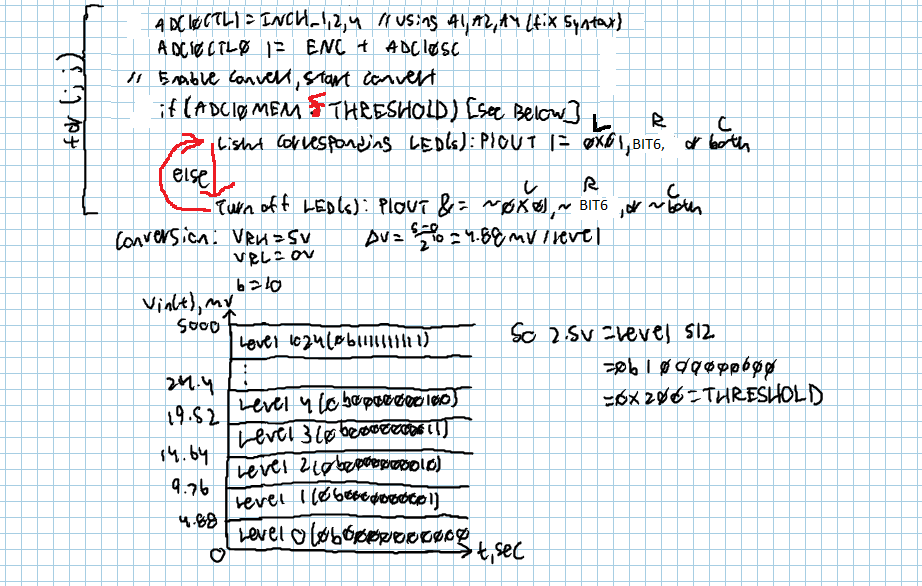 for(;;)
ADC10CTL1 = INCH_1,2,4 // Using A1, A2, A4 (fix syntax)
ADC10CTL0 |= ENC + ADC10SC
// Enable convert, start convert
if(ADC10MEM THRESHOLD) [see below]
L R C
Light corresponding LED(s): P1OUT |= 0x01, BIT6, or both
else
L R C
Turn off LED(s): P1OUT &= ~0x01, ~ BIT6, or ~both
Conversion: VRH = 5V ΔV = 5-0/2^10 = 4.88 mV/level
VRL = 0V
b = 10
Vin(t), mV
5000
Level 1024 (0b1111111111)
⋮
24.4
Level 4 (0b0000000100)
19.52
Level 3 (0b0000000011)
14.64
Level 2 (0b0000000010)
9.76
Level 1 (0b0000000001)
4.88
Level 0 (0b0000000000
0
t, sec
So 2.5V = Level 512
= 0b1000000000
= 0x200 = THRESHOLD